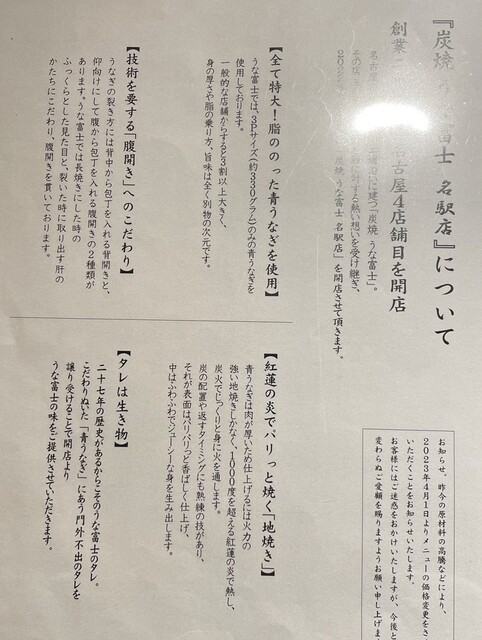 『炭焼 富士 名駅店』について
創業 名古屋4店舗目を開店
に建つ「炭焼 うな富士」。
に対する熱い想いを受け継ぎ、
炭焼 うな富士 名駅店」を開店させて頂きます。
【全て特大！脂ののった青うなぎを使用】
うな富士では、3Pサイズ（約330グラム）のみの青うなぎを
使用しております。
一般的な店舗からすると3割以上大きく、
身の厚さや脂の乗り方、旨味は全く別物の次元です。
【技術を要する「腹開き」へのこだわり】
うなぎの裂き方には背中から包丁を入れる背開きと、
仰向けにして腹から包丁を入れる腹開きの2種類が
あります。うな富士では長焼きにした時の
ふっくらとした見た目と、裂いた時に取り出す肝の
かたちにこだわり、腹開きを貫いております。
お知らせ、昨今の原材料の高騰などにより、
2023年4月1日よりメニューの価格変更をさ
いただくことをお知らせいたします。
お客様にはご迷惑をおかけいたしますが、今後と
変わらぬご愛顧を賜りますようお願い申し上げま
【紅蓮の炎でパリっと焼く「地焼き」】
青うなぎは肉が厚いため仕上げるには火力の
強い地焼きしかなく、1000度を超える紅蓮の炎で熱し、
炭火でじっくりと身に火を通します。
炭の配置や返すタイミングにも熟練の技があり、
それが表面はパリパリっと香ばしく仕上げ、
中はふわふわでジューシーな身を生み出します。
【タレは生き物】
二十七年の歴史があるからこそのうな富士のタレ。
こだわりぬいた「青うなぎ」にあう門外不出のタレを
譲り受けることで開店より
うな富士の味をご提供させていただきます。